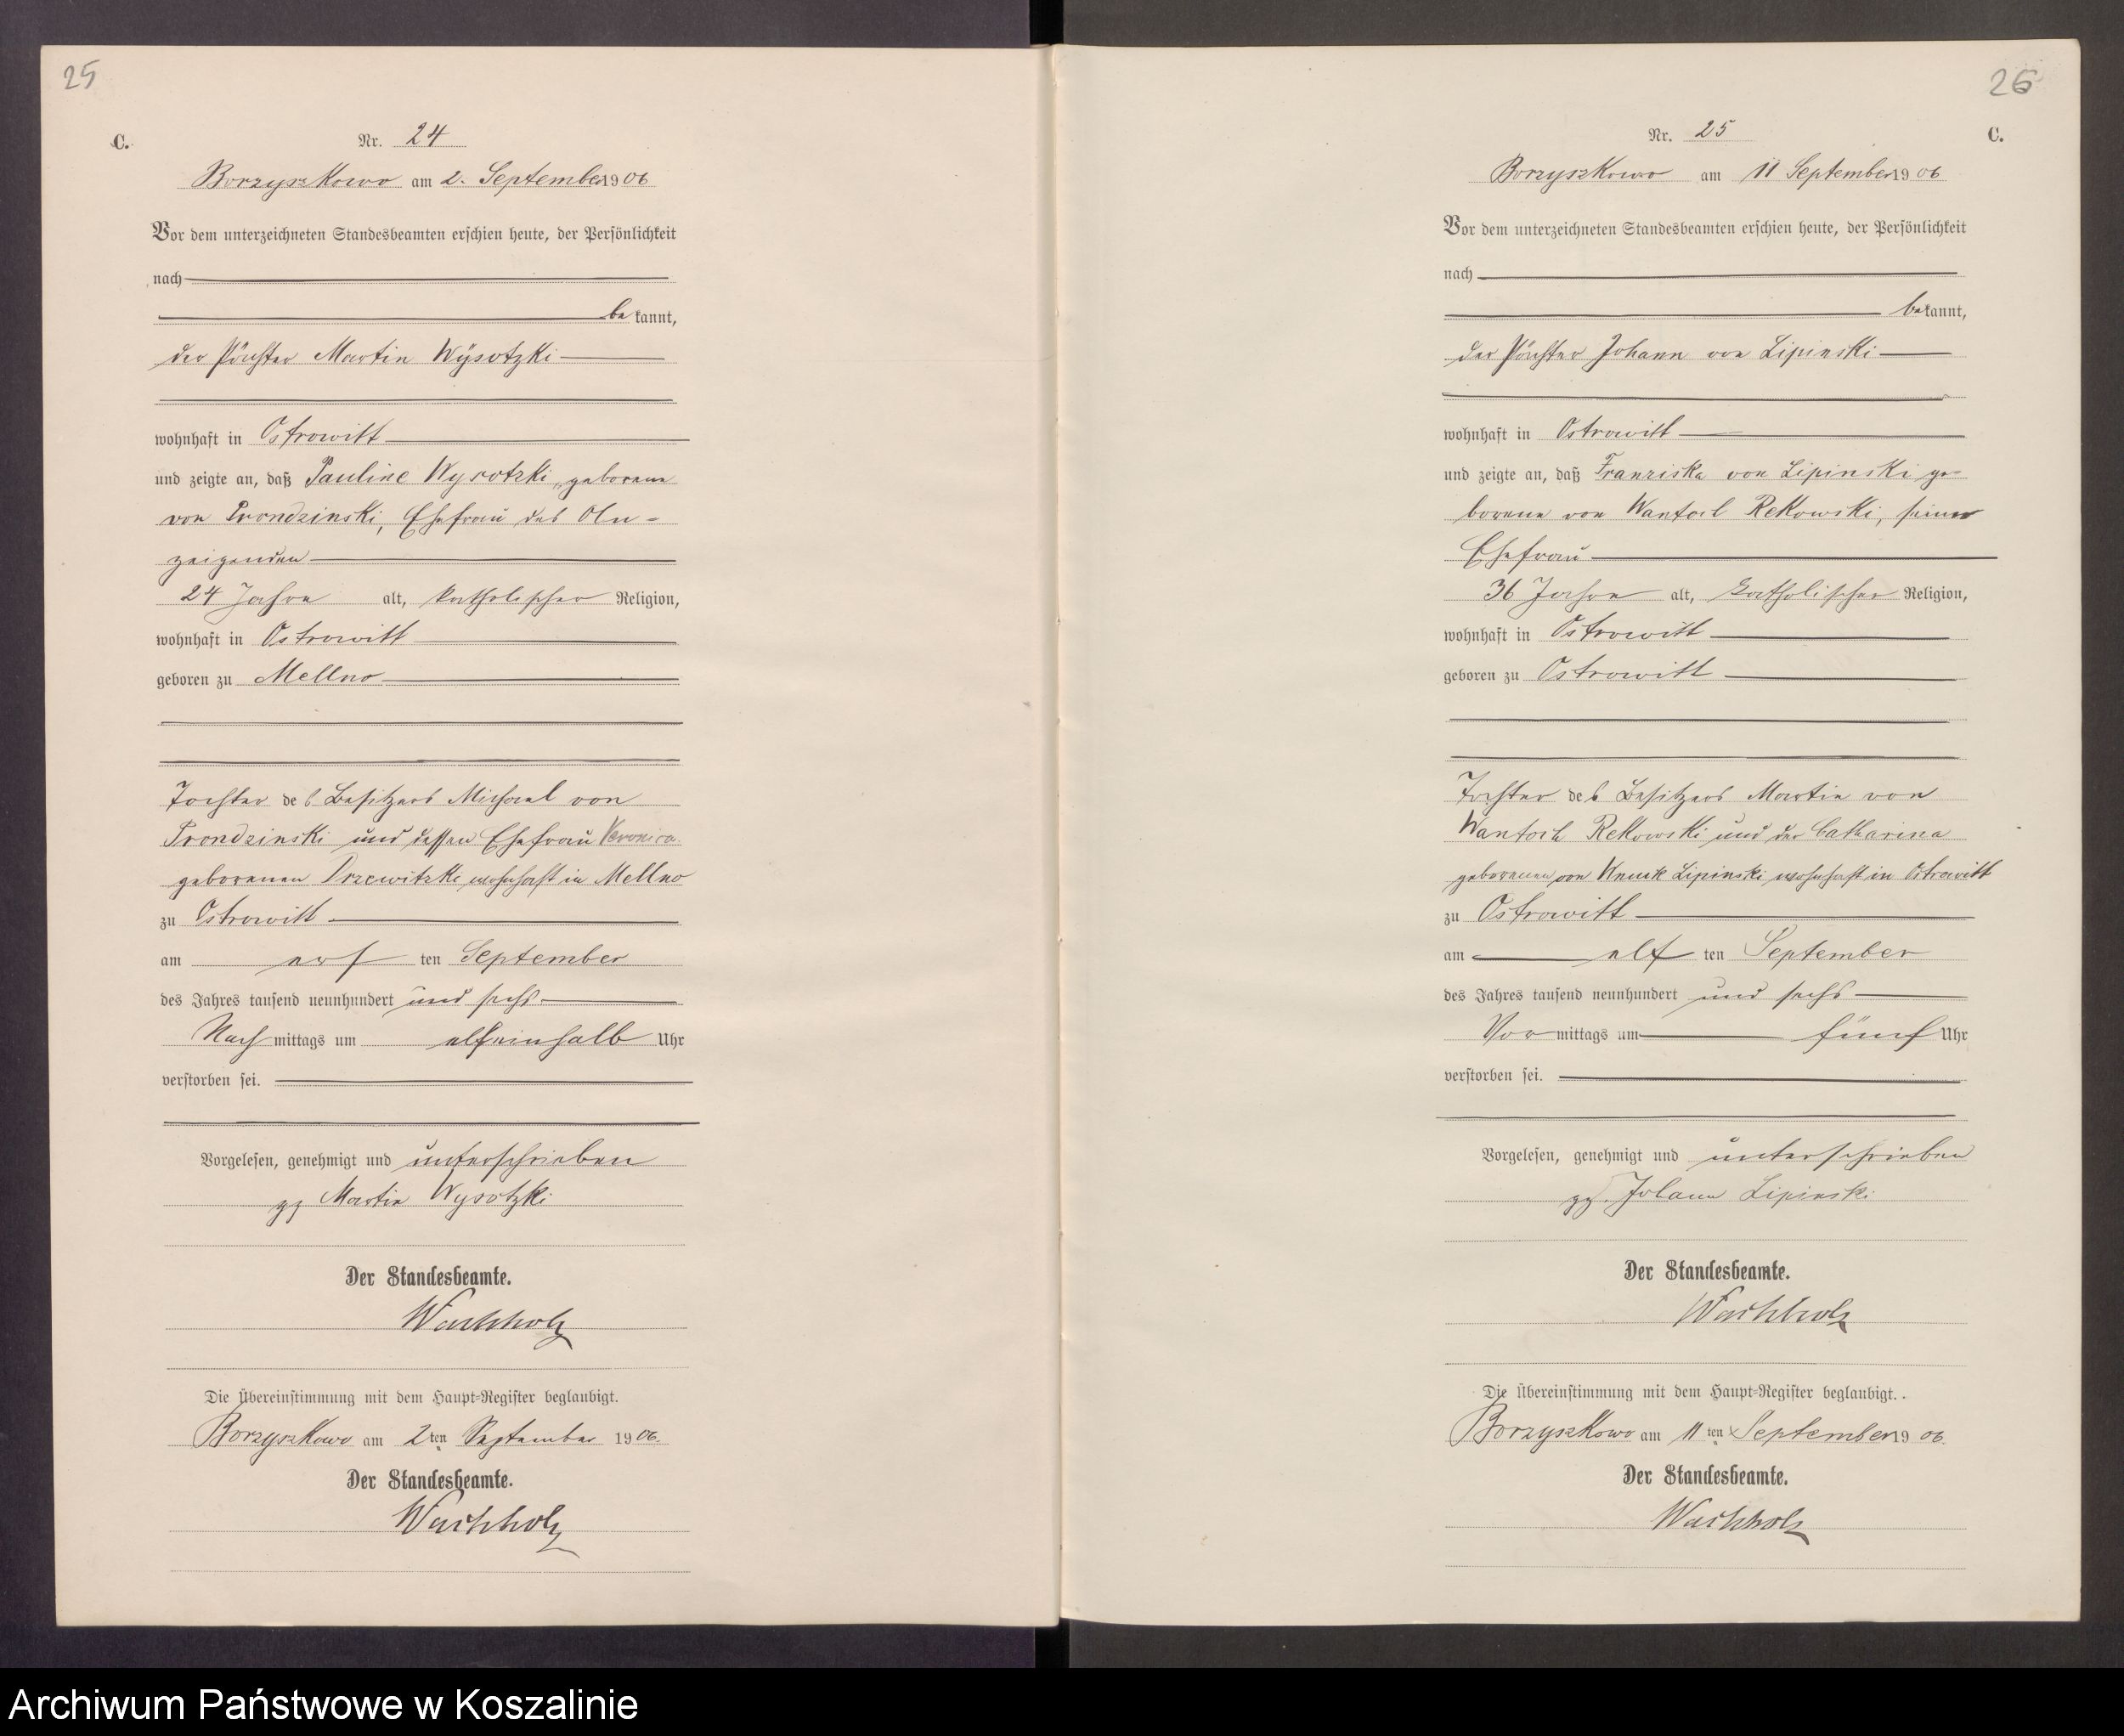 25
C.
Nr. 24
Borzyszkowo am 2. September 1906
Vor dem unterzeichneten Standesbeamten erschien heute, der Persönlichkeit
nach
bekannt,
der Pächter Martin Wÿsotzki
wohnhaft in Ostrowitt
und zeigte an, daß Pauline Wysotzki, geborene
von Prondzinski, Ehefrau des An-
zeigenden
24 Jahre alt, katholischer Religion,
wohnhaft in Ostrowitt
geboren zu Mellno
Tochter des Besitzers Michael von
Prondzinski und dessen Ehefrau Veronica
geborenen wohnhaft in Mellno
zu Ostrowitt
am ten September
des Jahres tausend neunhundert und sechs
Nachmittags um elfeinhalb Uhr
verstorben sei.
Vorgelesen, genehmigt und unterschrieben
gz Martin Wysotzki
Der Standesbeamte.
Wachholz
Die Übereinstimmung mit dem Haupt-Register beglaubigt.
Borzyszkowo am 2ten September 1906.
Der Standesbeamte.
Wachholz
26
C.
Nr. 25
Borzyszkowo am 11 September 1906
Vor dem unterzeichneten Standesbeamten erschien heute, der Persönlichkeit
nach
bekannt,
der Pächter Johann von Lipinski
wohnhaft in Ostrowitt
und zeigte an, daß Franziska von Lipinski ge-
borene von Wantoch Rekowski, seine
Ehefrau
36 Jahre alt, katholischer Religion,
wohnhaft in Ostrowitt
geboren zu Ostrowitt
Tochter des Besitzers Martin von
Wantoch Rekowski und der Catharina
geborenen von Lipinski wohnhaft in Ostrowitt
zu Ostrowitt
am elf ten September
des Jahres tausend neunhundert und sechs
Vormittags um fünf Uhr
verstorben sei.
Vorgelesen, genehmigt und unterschrieben
gz. Johann Lipinski
Der Standesbeamte.
Wachholz
Die Übereinstimmung mit dem Haupt-Register beglaubigt.
Borzyszkowo am 11ten September 1906.
Der Standesbeamte.
Wachholz
Archiwum Państwowe w Koszalinie